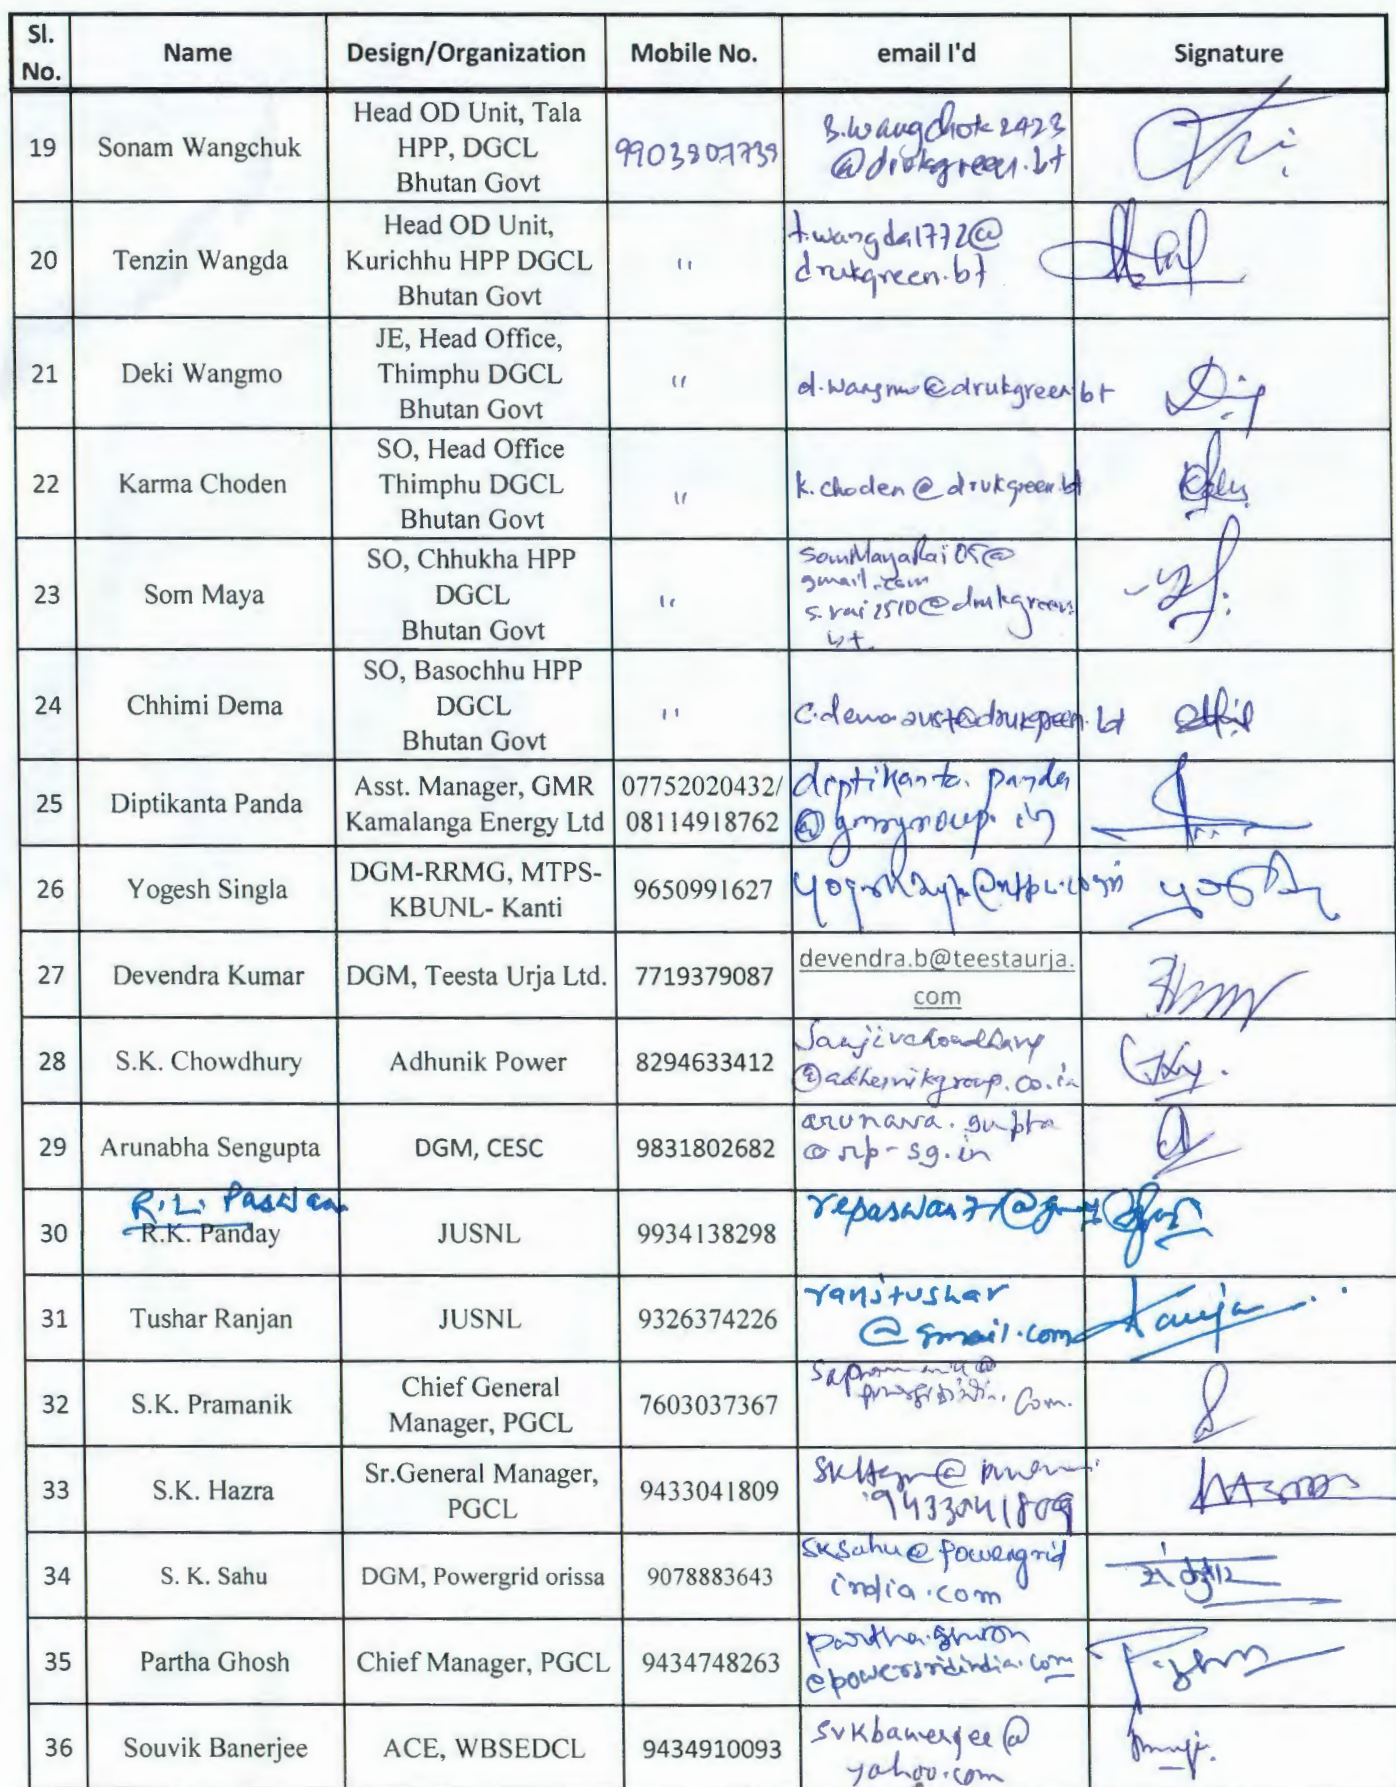 Sl. No. Name Design/Organization Mobile No. email I'd Signature
19 Sonam Wangchuk Head OD Unit, Tala HPP, DGCL Bhutan Govt 9903907739 s.wangchok2423 @drukgreen.bt
20 Tenzin Wangda Head OD Unit, Kurichhu HPP DGCL Bhutan Govt " t.wangda1772@ drukgreen.bt
21 Deki Wangmo JE, Head Office, Thimphu DGCL Bhutan Govt " d.wangmo@drukgreen.bt
22 Karma Choden SO, Head Office Thimphu DGCL Bhutan Govt " k.choden@drukgreen.bt
23 Som Maya SO, Chhukha HPP DGCL Bhutan Govt " SomMayaRai05@ gmail.com s.rai2510@drukgreen. bt
24 Chhimi Dema SO, Basochhu HPP DGCL Bhutan Govt "
25 Diptikanta Panda Asst. Manager, GMR Kamalanga Energy Ltd 07752020432/ 08114918762 diptikanta.panda @gmrgroup.in
26 Yogesh Singla DGM-RRMG, MTPS- KBUNL- Kanti 9650991627
27 Devendra Kumar DGM, Teesta Urja Ltd. 7719379087 devendra.b@teestaurja. com
28 S.K. Chowdhury Adhunik Power 8294633412 Sanjivchoudhary @adhunikgroup.co.in
29 Arunabha Sengupta DGM, CESC 9831802682 arunava.gupta @rp-sg.in
R.L. Paswan
30 R.K. Panday JUSNL 9934138298
31 Tushar Ranjan JUSNL 9326374226 ranjtushar @gmail.com
32 S.K. Pramanik Chief General Manager, PGCL 7603037367
33 S.K. Hazra Sr.General Manager, PGCL 9433041809 9433041809
34 S. K. Sahu DGM, Powergrid orissa 9078883643 sksahu@powergrid india.com
35 Partha Ghosh Chief Manager, PGCL 9434748263 partha.ghosh @powergridindia.com
36 Souvik Banerjee ACE, WBSEDCL 9434910093 svkbanerjee@ yahoo.com